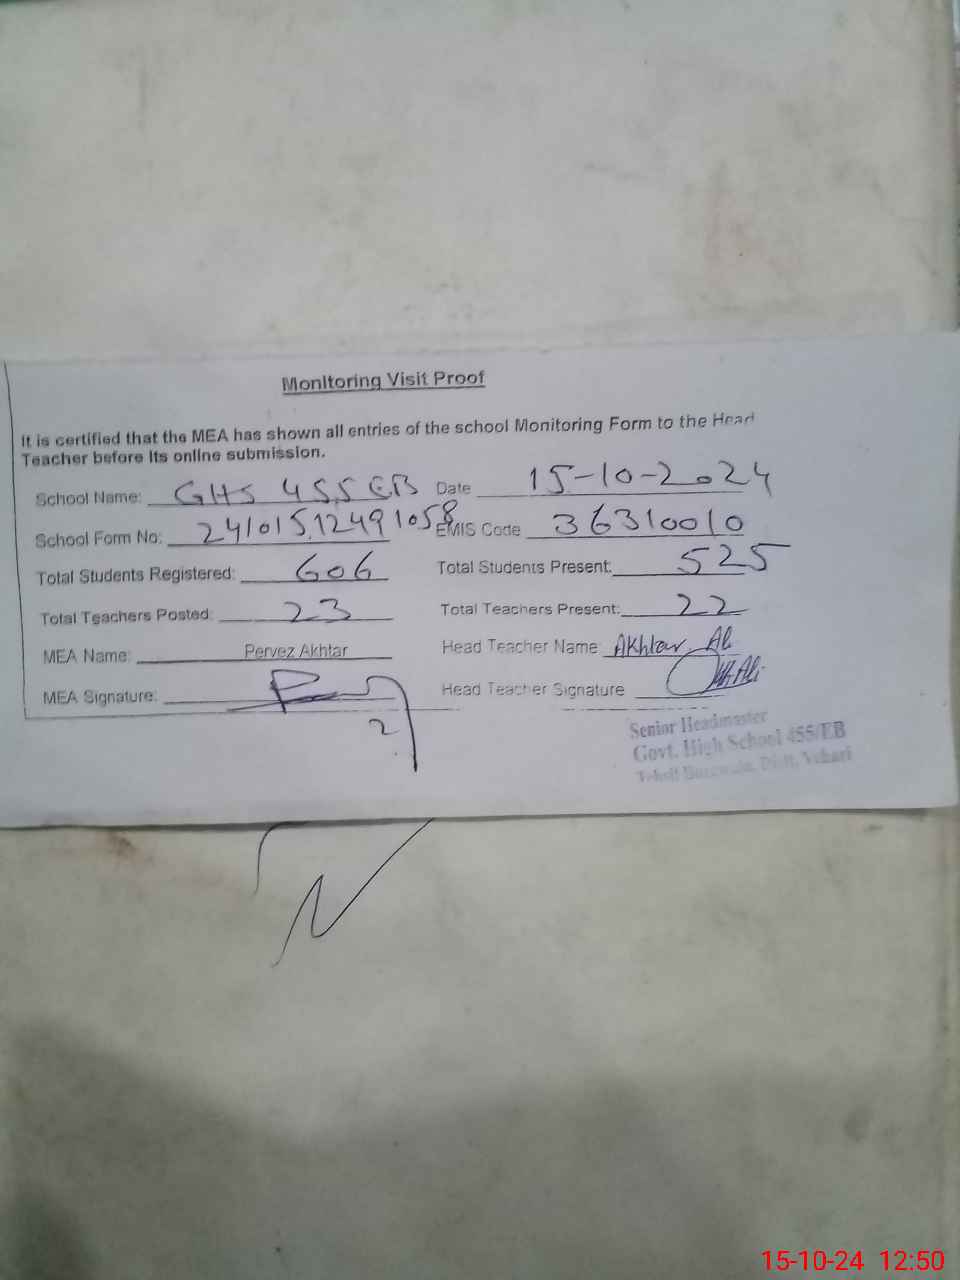 Monitoring Visit Proof
It is certified that the MEA has shown all entries of the school Monitoring Form to the Head
Teacher before its online submission.
School Name: GHS 455 EB Date 15-10-2024
School Form No: 24101512491058 EMIS Code 36310010
Total Students Registered: 606 Total Students Present: 525
Total Teachers Posted: 23 Total Teachers Present: 22
MEA Name: Pervez Akhtar Head Teacher Name Akhtar Ali
MEA Signature: Head Teacher Signature
Senior Headmaster
Govt. High School 455/EB
Distt. Vehari
15-10-24 12:50